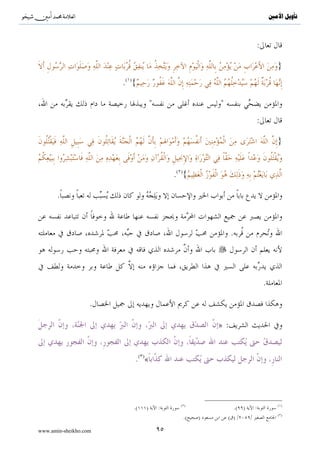 تأويل الأمين
العلامة محمد أمين شيخو
قال تعالى:
{وَمِنَ الْأَعْرَابِ مَنْ يُؤْمِنُ بِاللَّهِ وَالْيَوْمِ الْآخِرِ وَيَتَّخِذُ مَا يُنْفِقُ قُرُبَاتٍ عِنْدَ اللَّهِ وَصَلَوَاتِ الرَّسُولِ أَلَا
إِنَّهَا قُرْبَةٌ لَهُمْ سَيُدْخِلُهُمُ اللَّهُ فِي رَحْمَتِهِ إِنَّ اللَّهَ غَفُورٌ رَحِيمٌ}(١).
والمؤمن يضحّي بنفسه "وليس عنده أغلى من نفسه" ويبذلها رخيصة ما دام ذلك يقرّبه من الله،
قال تعالى:
{إِنَّ اللَّهَ اشْتَرَى مِنَ الْمُؤْمِنِينَ أَنْفُسَهُمْ وَأَمْوَالَهُمْ بِأَنَّ لَهُمُ الْجَنَّةَ يُقَاتِلُونَ فِي سَبِيلِ اللَّهِ فَيَقْتُلُونَ
وَيُقْتَلُونَ وَعْداً عَلَيْهِ حَقّاً فِي التَّوْرَاةِ وَالْإِنْجِيلِ وَالْقُرْآنِ وَمَنْ أَوْفَى بِعَهْدِهِ مِنَ اللَّهِ فَاسْتَبْشِرُوا بِبَيْعِكُمُ
الَّذِي بَايَعْتُمْ بِهِ وَذَلِكَ هُوَ الْفَوْزُ الْعَظِيمُ}(٢).
والمؤمن لا يدع باباً من أبواب الخير والإحسان إلا ويَلِجُهُ ولو كان ذلك يُسبِّب له تعباً ونصباً.
والمؤمن يصبر عن جميع الشهوات المحرَّمة ويحجز نفسه عنها طاعة لله وخوفاً أن تتباعد نفسه عن
الله وتُحرم من قُربه. والمؤمن محبٌّ لرسول الله، صادق في حبِّه، محبٌّ لمرشده، صادق في معاملته
لأنه يعلم أن الرسول ﷺ باب الله وأنَّ مرشده الذي فاقه في معرفة الله ومحبته وحب رسوله هو
الذي يدرِّبه على السير في هذا الطريق، فما جزاؤه منه إلاَّ كل طاعة وبر وخدمة ولطف في
المعاملة.
وهكذا فصدق المؤمن يكشف له عن كريم الأعمال ويهديه إلى جميل الخصال.
وفي الحديث الشريف: «إنَّ الصدْقَ يهدي إلى البّرِ، وإنَّ البّر يهدي إلى الجَنَّة، وإنَّ الرجلَ
ليصدقُ حتى يُكتب عند الله صدِّيقاً، وإنَّ الكذبَ يهدي إلى الفجور، وإنَّ الفجور يهدي إلى
النار، وإنَّ الرجل ليكذب حتى يُكتب عند الله كذَّاباً»(٣).
(١) سورة التوبة: الآية (٩٩). (٢) سورة التوبة: الآية (١١١).
(٣) الجامع الصغير /٢٠٥٧/ (ق) عن ابن مسعود (صحيح).
٩٥
www.amin-sheikho.com